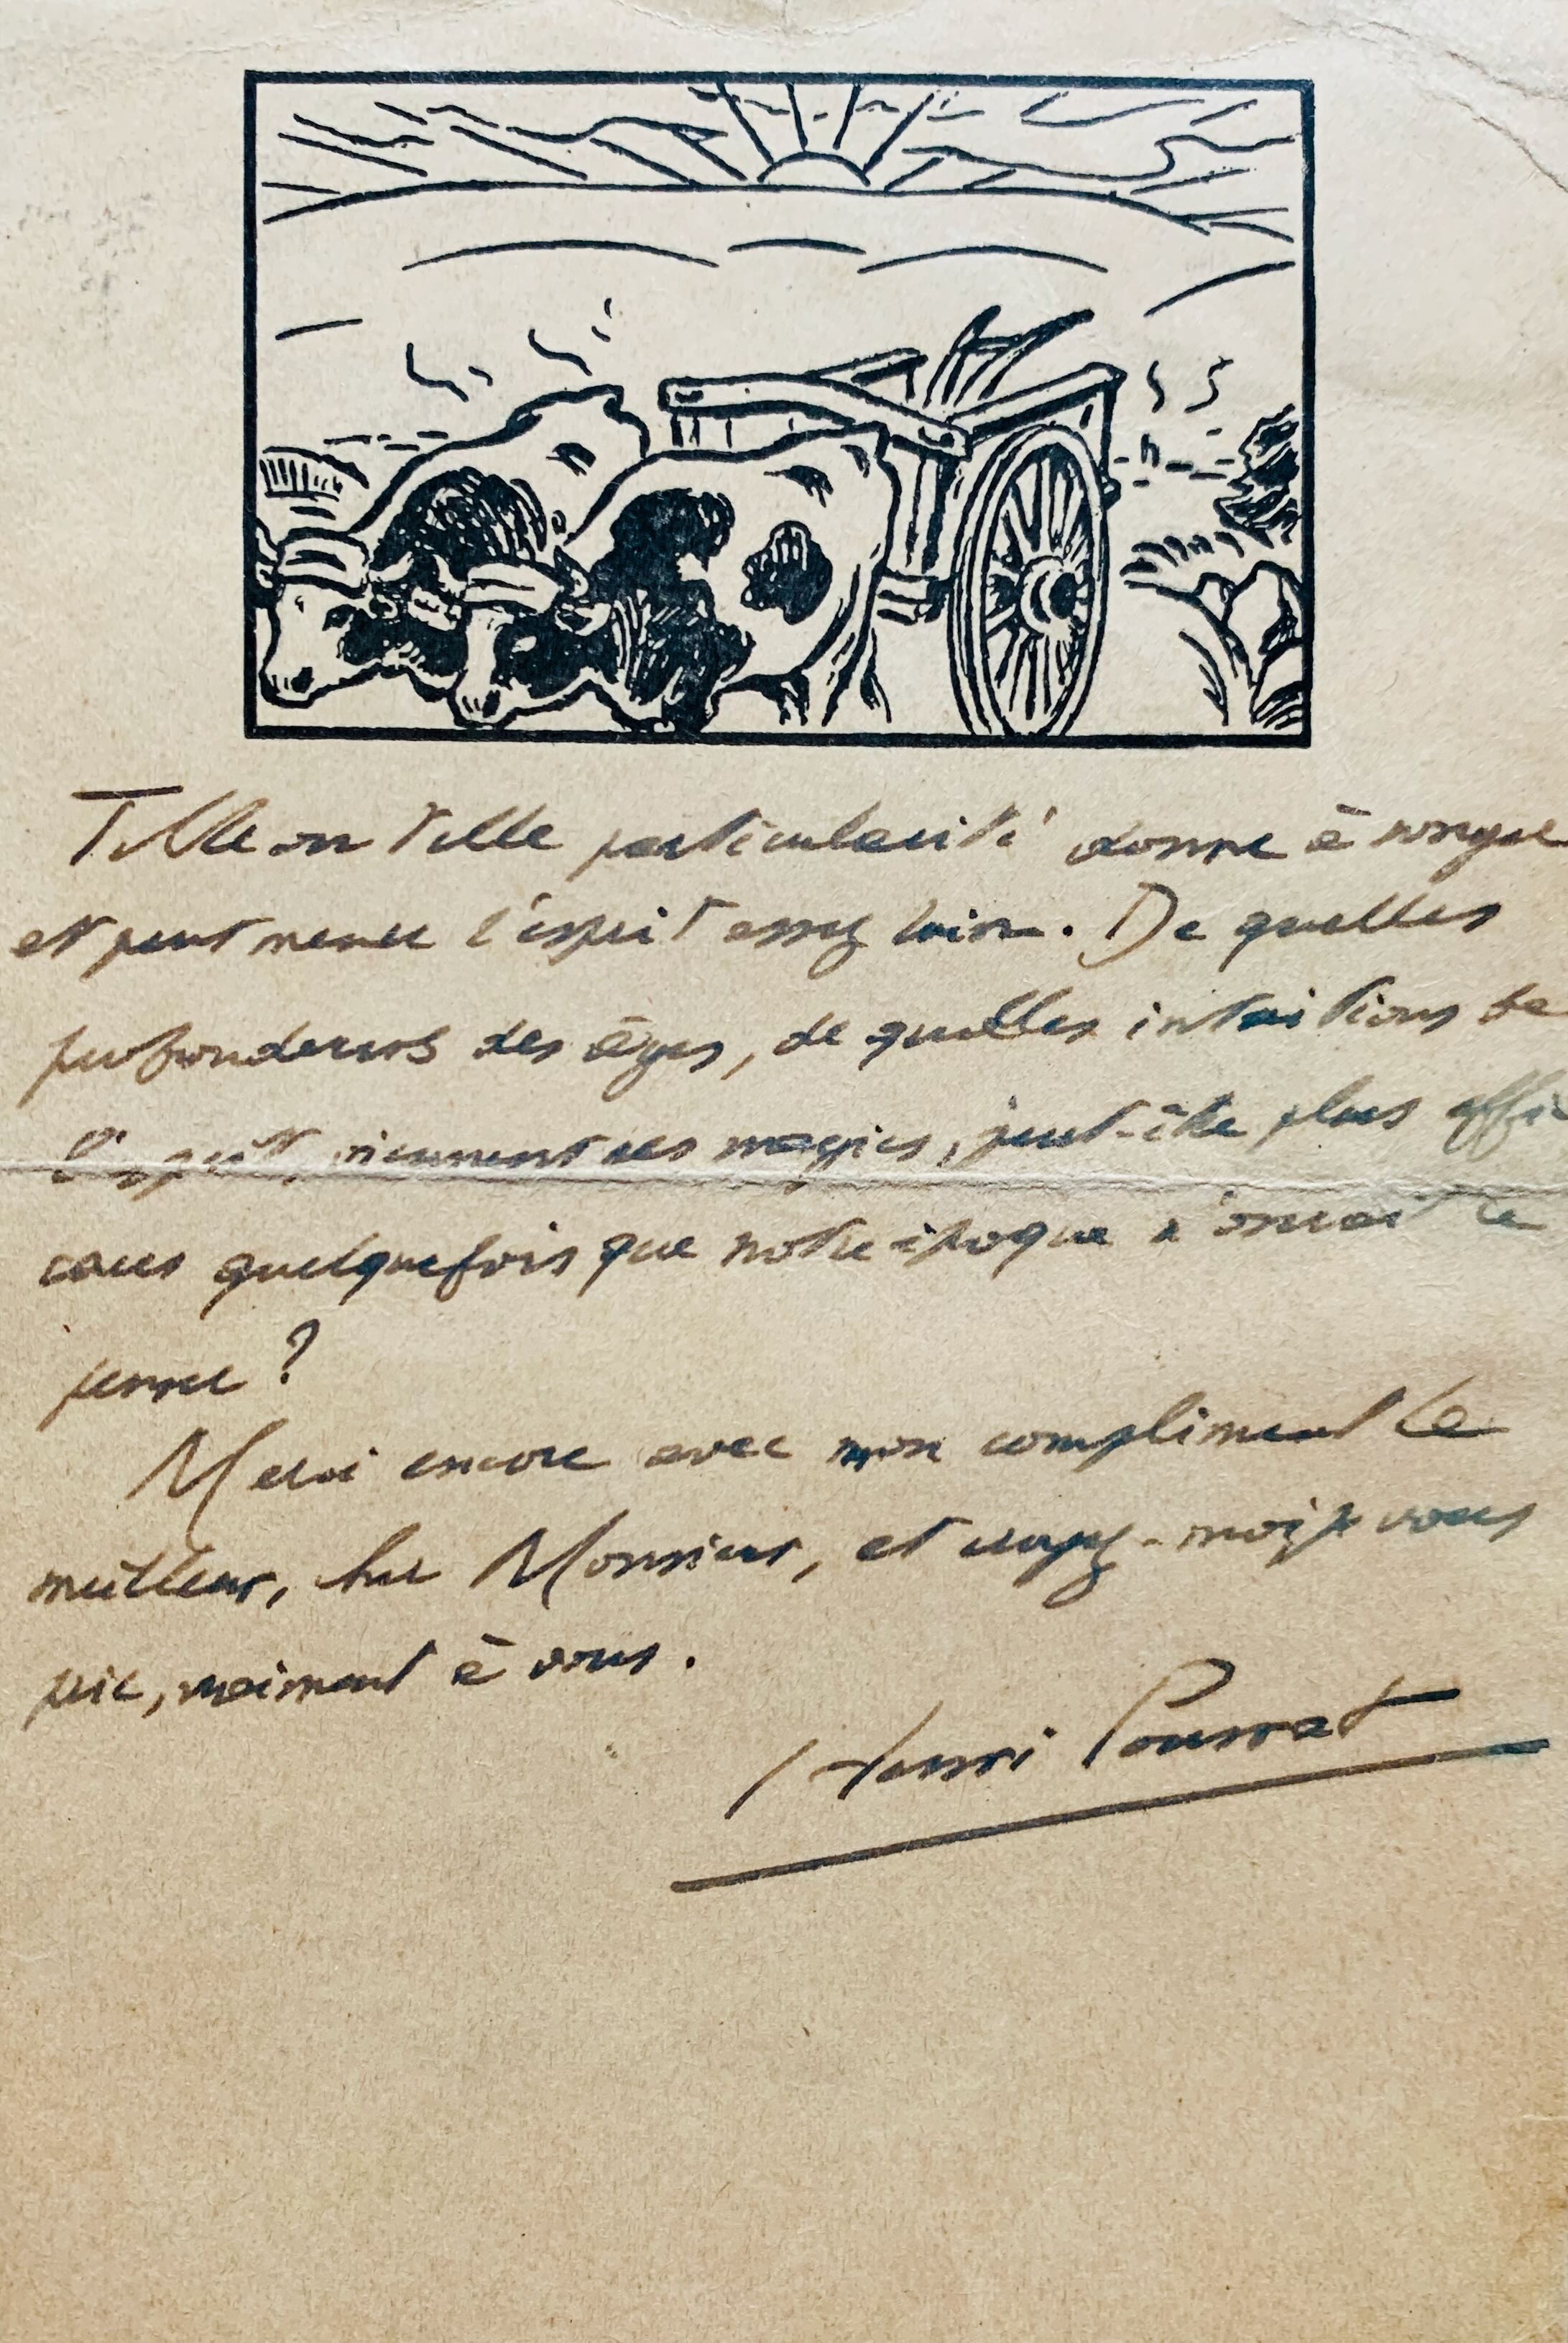 Telle ou telle particularité donne à songer
et peut mener l'esprit assez loin. De quelles
profondeurs des âges, de quelles intuitions de
l'esprit, viennent ces magies, peut-être plus effi
caces quelquefois que notre époque n'oserait le
penser ?
Merci encore avec mon compliment le
meilleur, cher Monsieur, et croyez-moi je vous
prie, vraiment à vous.
Henri Pourrat